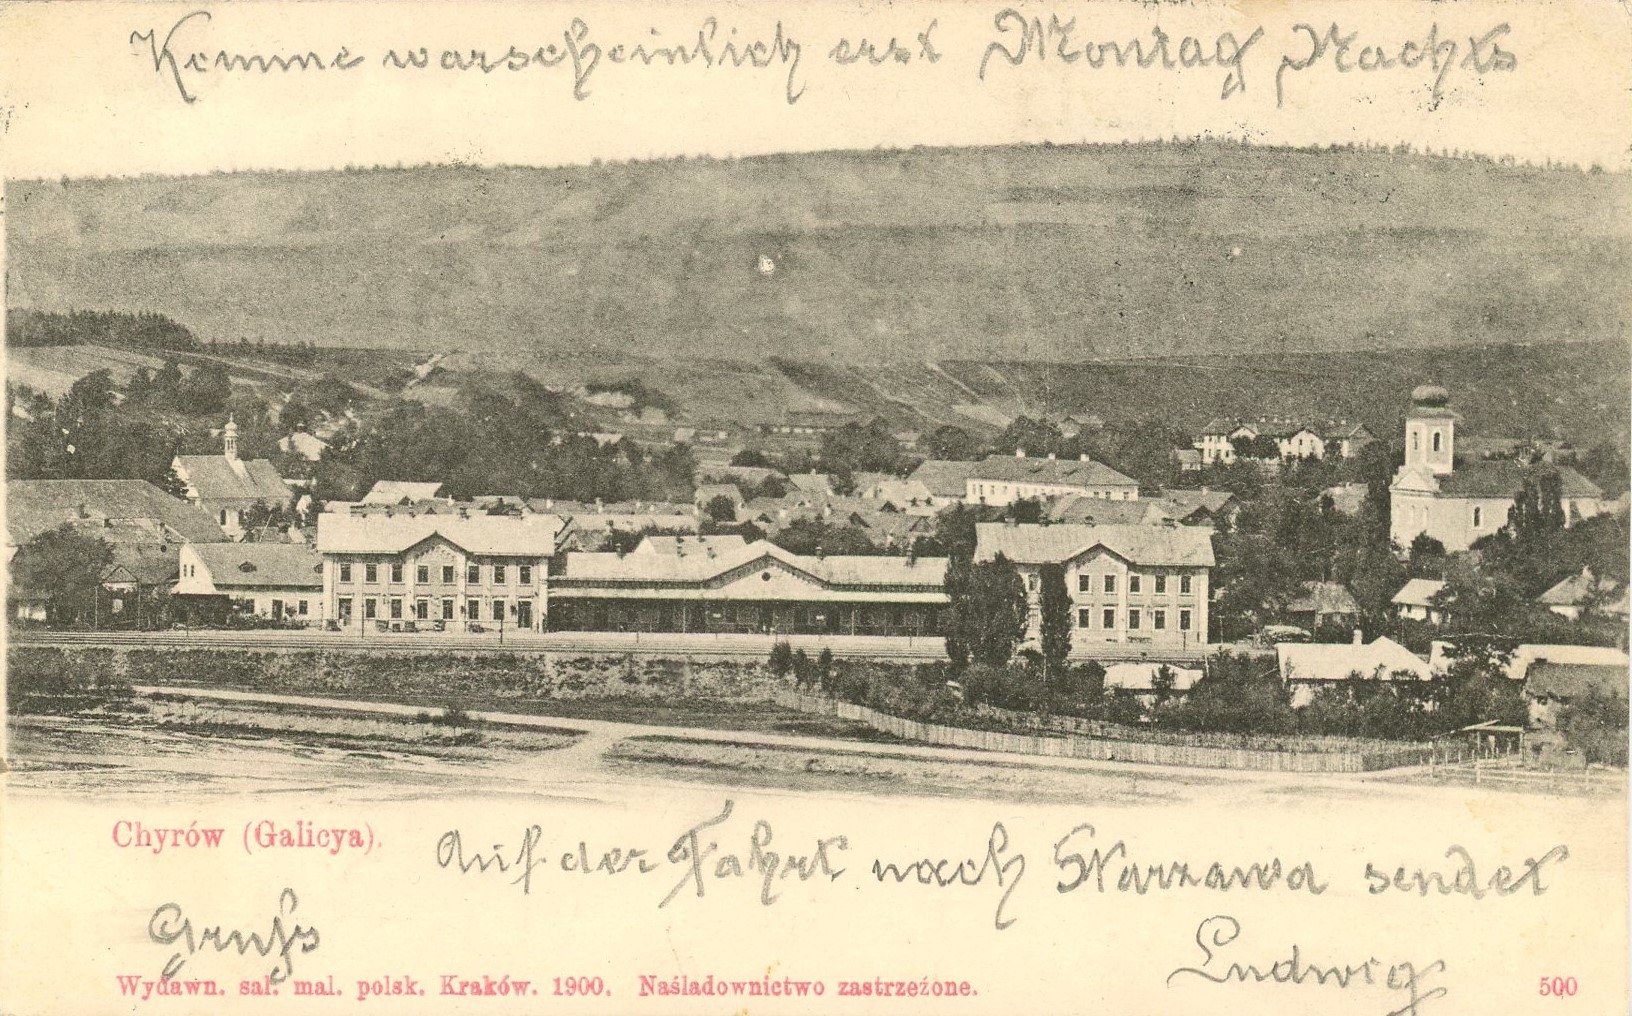 Komme warscheinlich erst Montag Nachts
Chyrów (Galicya).
Auf der Fahrt nach Starzawa sendet
Gruss
Ludwig
Wydawn. sal. mal. polsk. Kraków. 1900. Naśladownictwo zastrzeżone.
500